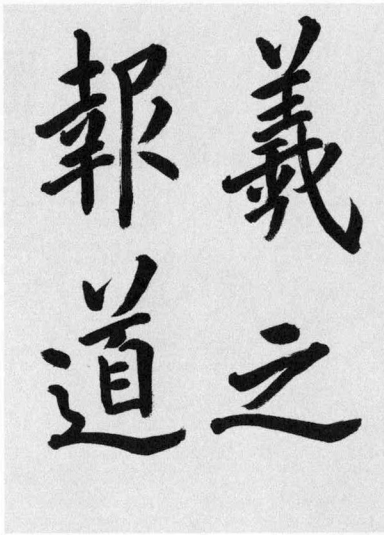 羲之
報道